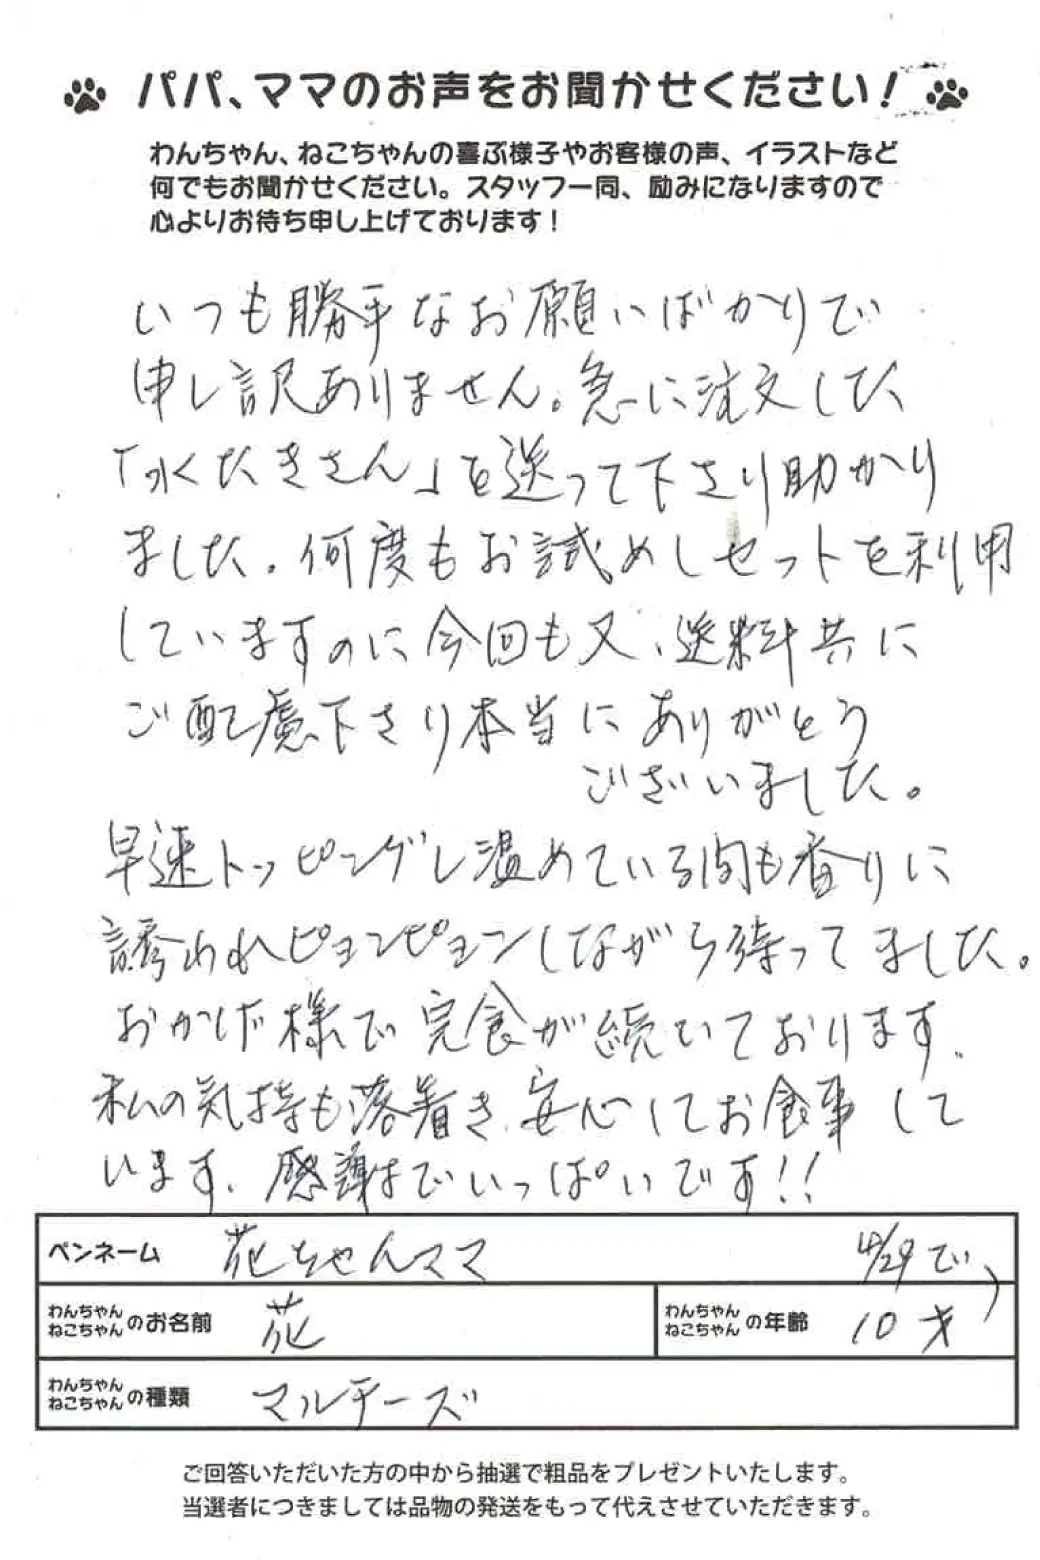 パパ、ママのお声をお聞かせください!
わんちゃん、ねこちゃんの喜ぶ様子やお客様の声、イラストなど
何でもお聞かせください。スタッフ一同、励みになりますので
心よりお待ち申し上げております!
いつも勝手なお願いばかりで
申し訳ありません。急に注文した
「水たきさん」を送って下さり助かり
ました。何度もお試めしセットを利用
していますのに今回も又、送料共に
ご配慮下さり本当にありがとう
ございました。
早速トッピングし温めている間も香りに
誘われピョンピョンしながら待ってました。
おかげ様で完食が続いております。
私の気持も落着き、安心してお食事して
います。感謝でいっぱいです!!
ペンネーム 花ちゃんママ 4/29で
わんちゃん ねこちゃん のお名前 花 わんちゃん ねこちゃん の年齢 10才
わんちゃん ねこちゃん の種類 マルチーズ
ご回答いただいた方の中から抽選で粗品をプレゼントいたします。
当選者につきましては品物の発送をもって代えさせていただきます。